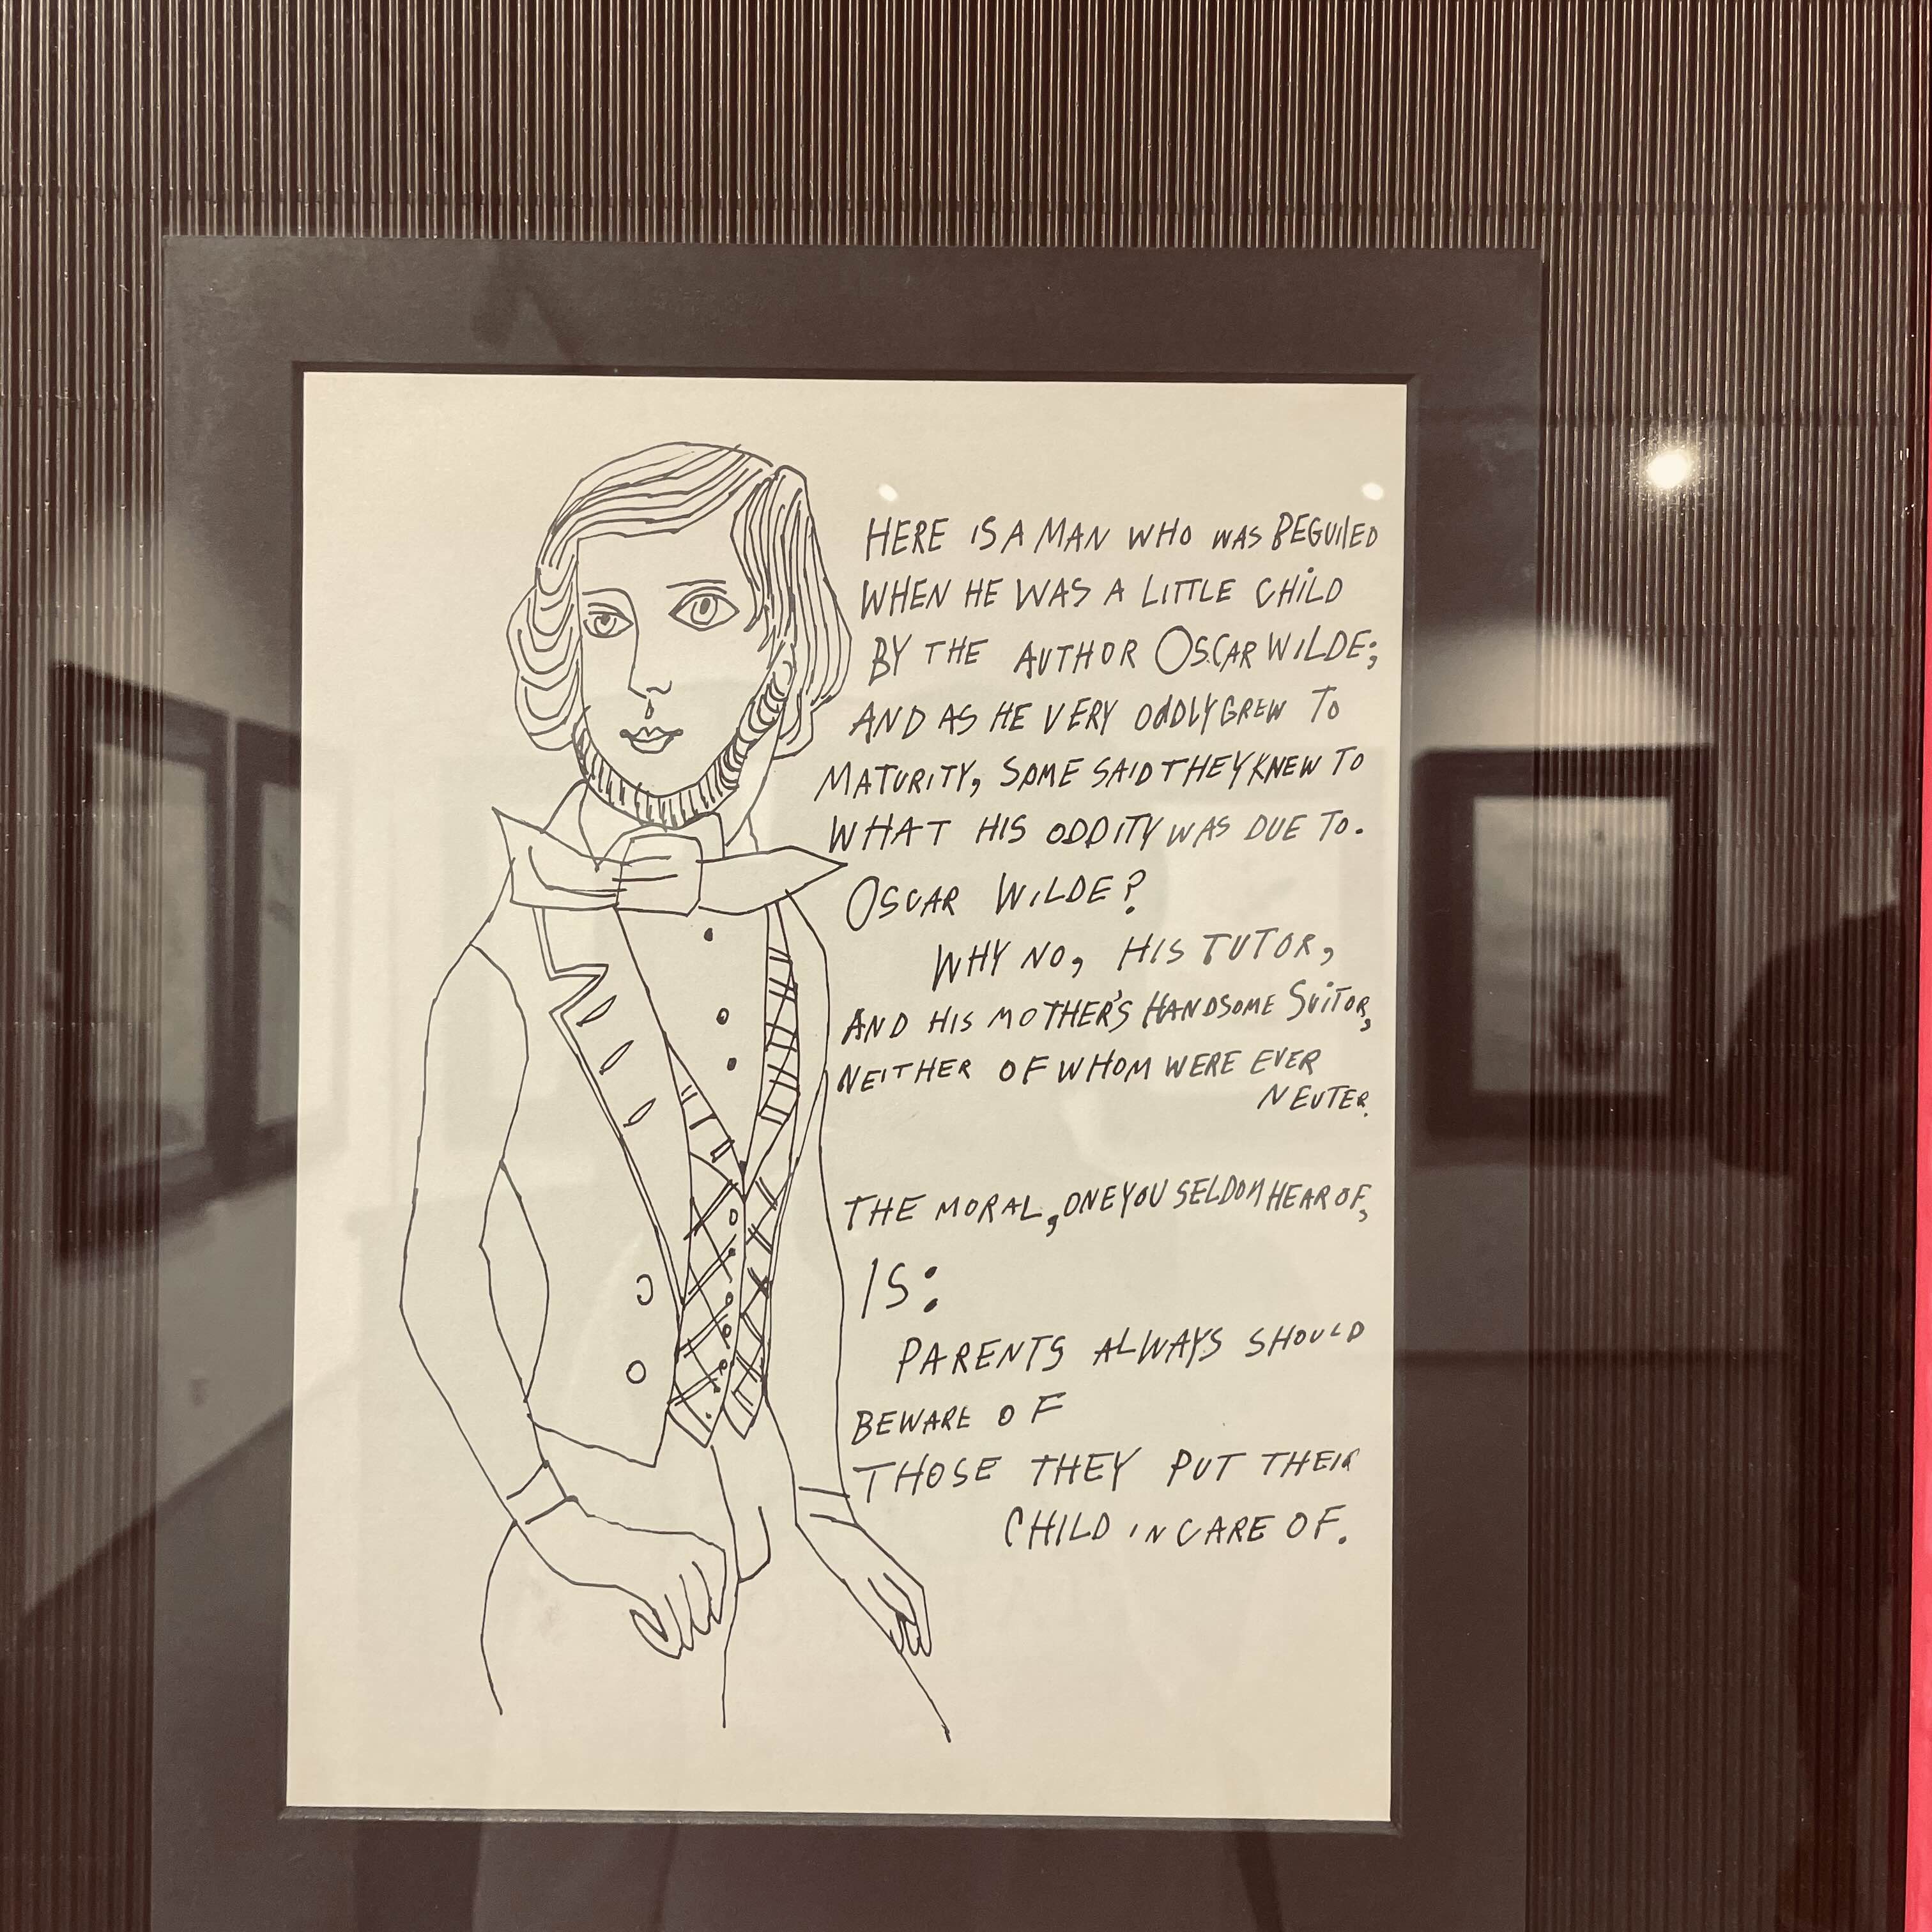 HERE IS A MAN WHO WAS BEGUILED
WHEN HE WAS A LITTLE CHILD
BY THE AUTHOR OSCAR WILDE;
AND AS HE VERY ODDLY GREW TO
MATURITY, SOME SAID THEY KNEW TO
WHAT HIS ODDITY WAS DUE TO.
OSCAR WILDE?
WHY NO, HIS TUTOR,
AND HIS MOTHER'S HANDSOME SUITOR,
NEITHER OF WHOM WERE EVER
NEUTER.
THE MORAL, ONE YOU SELDOM HEAR OF,
IS:
PARENTS ALWAYS SHOULD
BEWARE OF
THOSE THEY PUT THEIR
CHILD IN CARE OF.